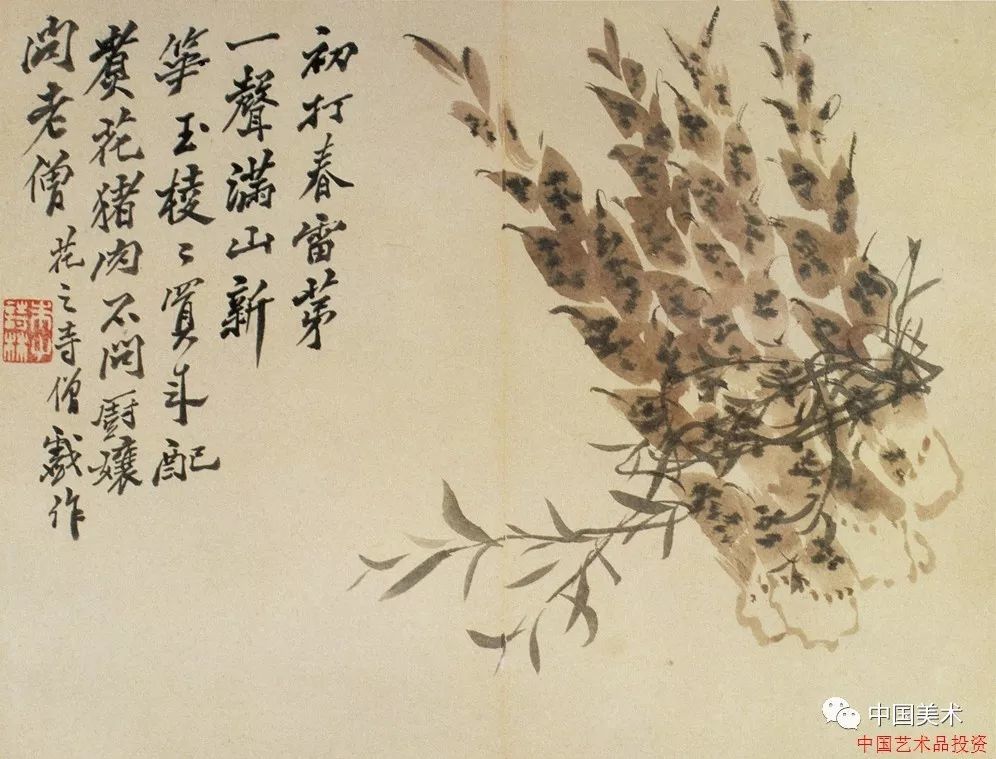 初打春雷第
一聲滿山新
笋玉棱〻買来配
煮花猪肉不問厨孃
問老僧 花之寺僧戲作
朱草詩林
中国美术
中国艺术品投资